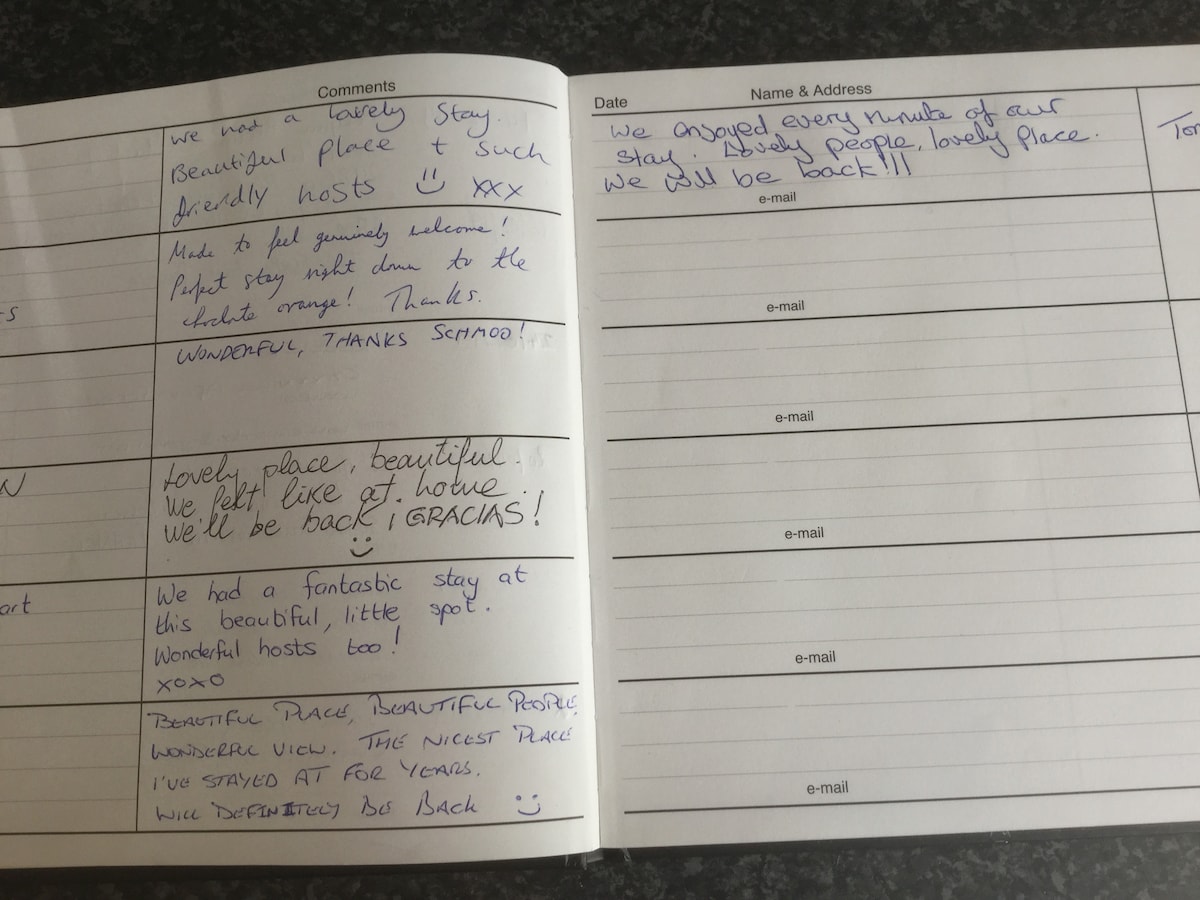 Comments
We had a lovely stay.
Beautiful place + such
friendly hosts xxx
Made to feel genuinely welcome!
Perfect stay right down to the
chocolate orange! Thanks.
-s
WONDERFUL, THANKS SCHMOO!
N
Lovely place, beautiful.
We felt like at home.
We'll be back ¡GRACIAS!
art
We had a fantastic stay at
this beautiful, little spot.
Wonderful hosts too!
XOXO
BEAUTIFUL PLACE, BEAUTIFUL PEOPLE,
WONDERFUL VIEW. THE NICEST PLACE
I'VE STAYED AT FOR YEARS.
WILL DEFINITELY BE BACK
Date Name & Address
We enjoyed every minute of our
stay. Lovely people, lovely place.
We will be back!!!
Tor
e-mail
e-mail
e-mail
e-mail
e-mail
e-mail